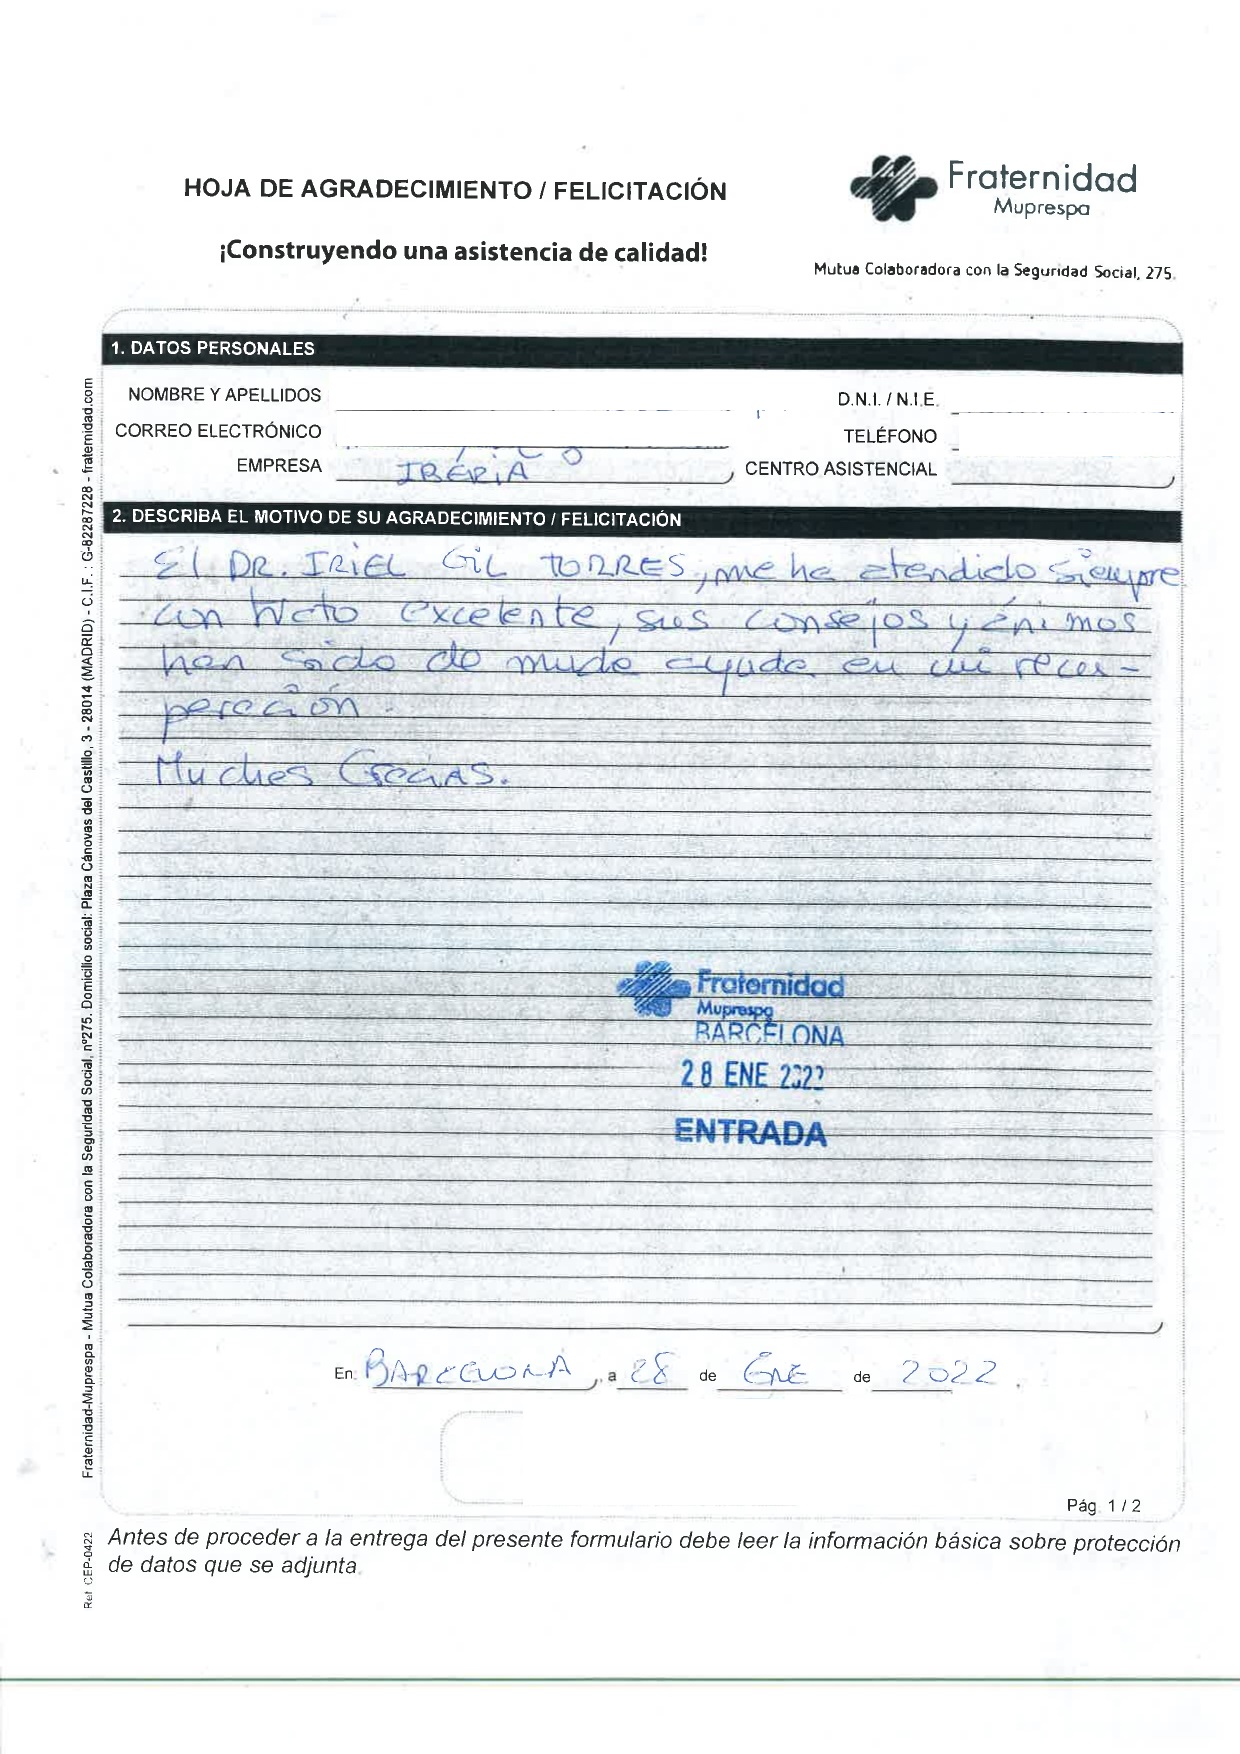 HOJA DE AGRADECIMIENTO / FELICITACIÓN
¡Construyendo una asistencia de calidad!
Fraternidad
Muprespa
Mutua Colaboradora con la Seguridad Social, 275.
1. DATOS PERSONALES
NOMBRE Y APELLIDOS
D.N.I. / N.I.E.
CORREO ELECTRÓNICO
TELÉFONO
EMPRESA IBERIA
CENTRO ASISTENCIAL
2. DESCRIBA EL MOTIVO DE SU AGRADECIMIENTO / FELICITACIÓN
El DR. IRIEL GIL TORRES, me ha atendido siempre
con trato excelente, sus consejos y ánimos
han sido de mucha ayuda en mi recu-
peración.
Muchas Gracias.
Fraternidad
Muprespa
BARCELONA
28 ENE 2022
ENTRADA
En BARCELONA, a 28 de ENE de 2022.
Pág. 1 / 2
Antes de proceder a la entrega del presente formulario debe leer la información básica sobre protección
de datos que se adjunta.
Fraternidad-Muprespa - Mutua Colaboradora con la Seguridad Social, nº275. Domicilio social: Plaza Cánovas del Castillo, 3 - 28014 (MADRID) - C.I.F. : G-82287228 - fraternidad.com
Ref CEP-0422